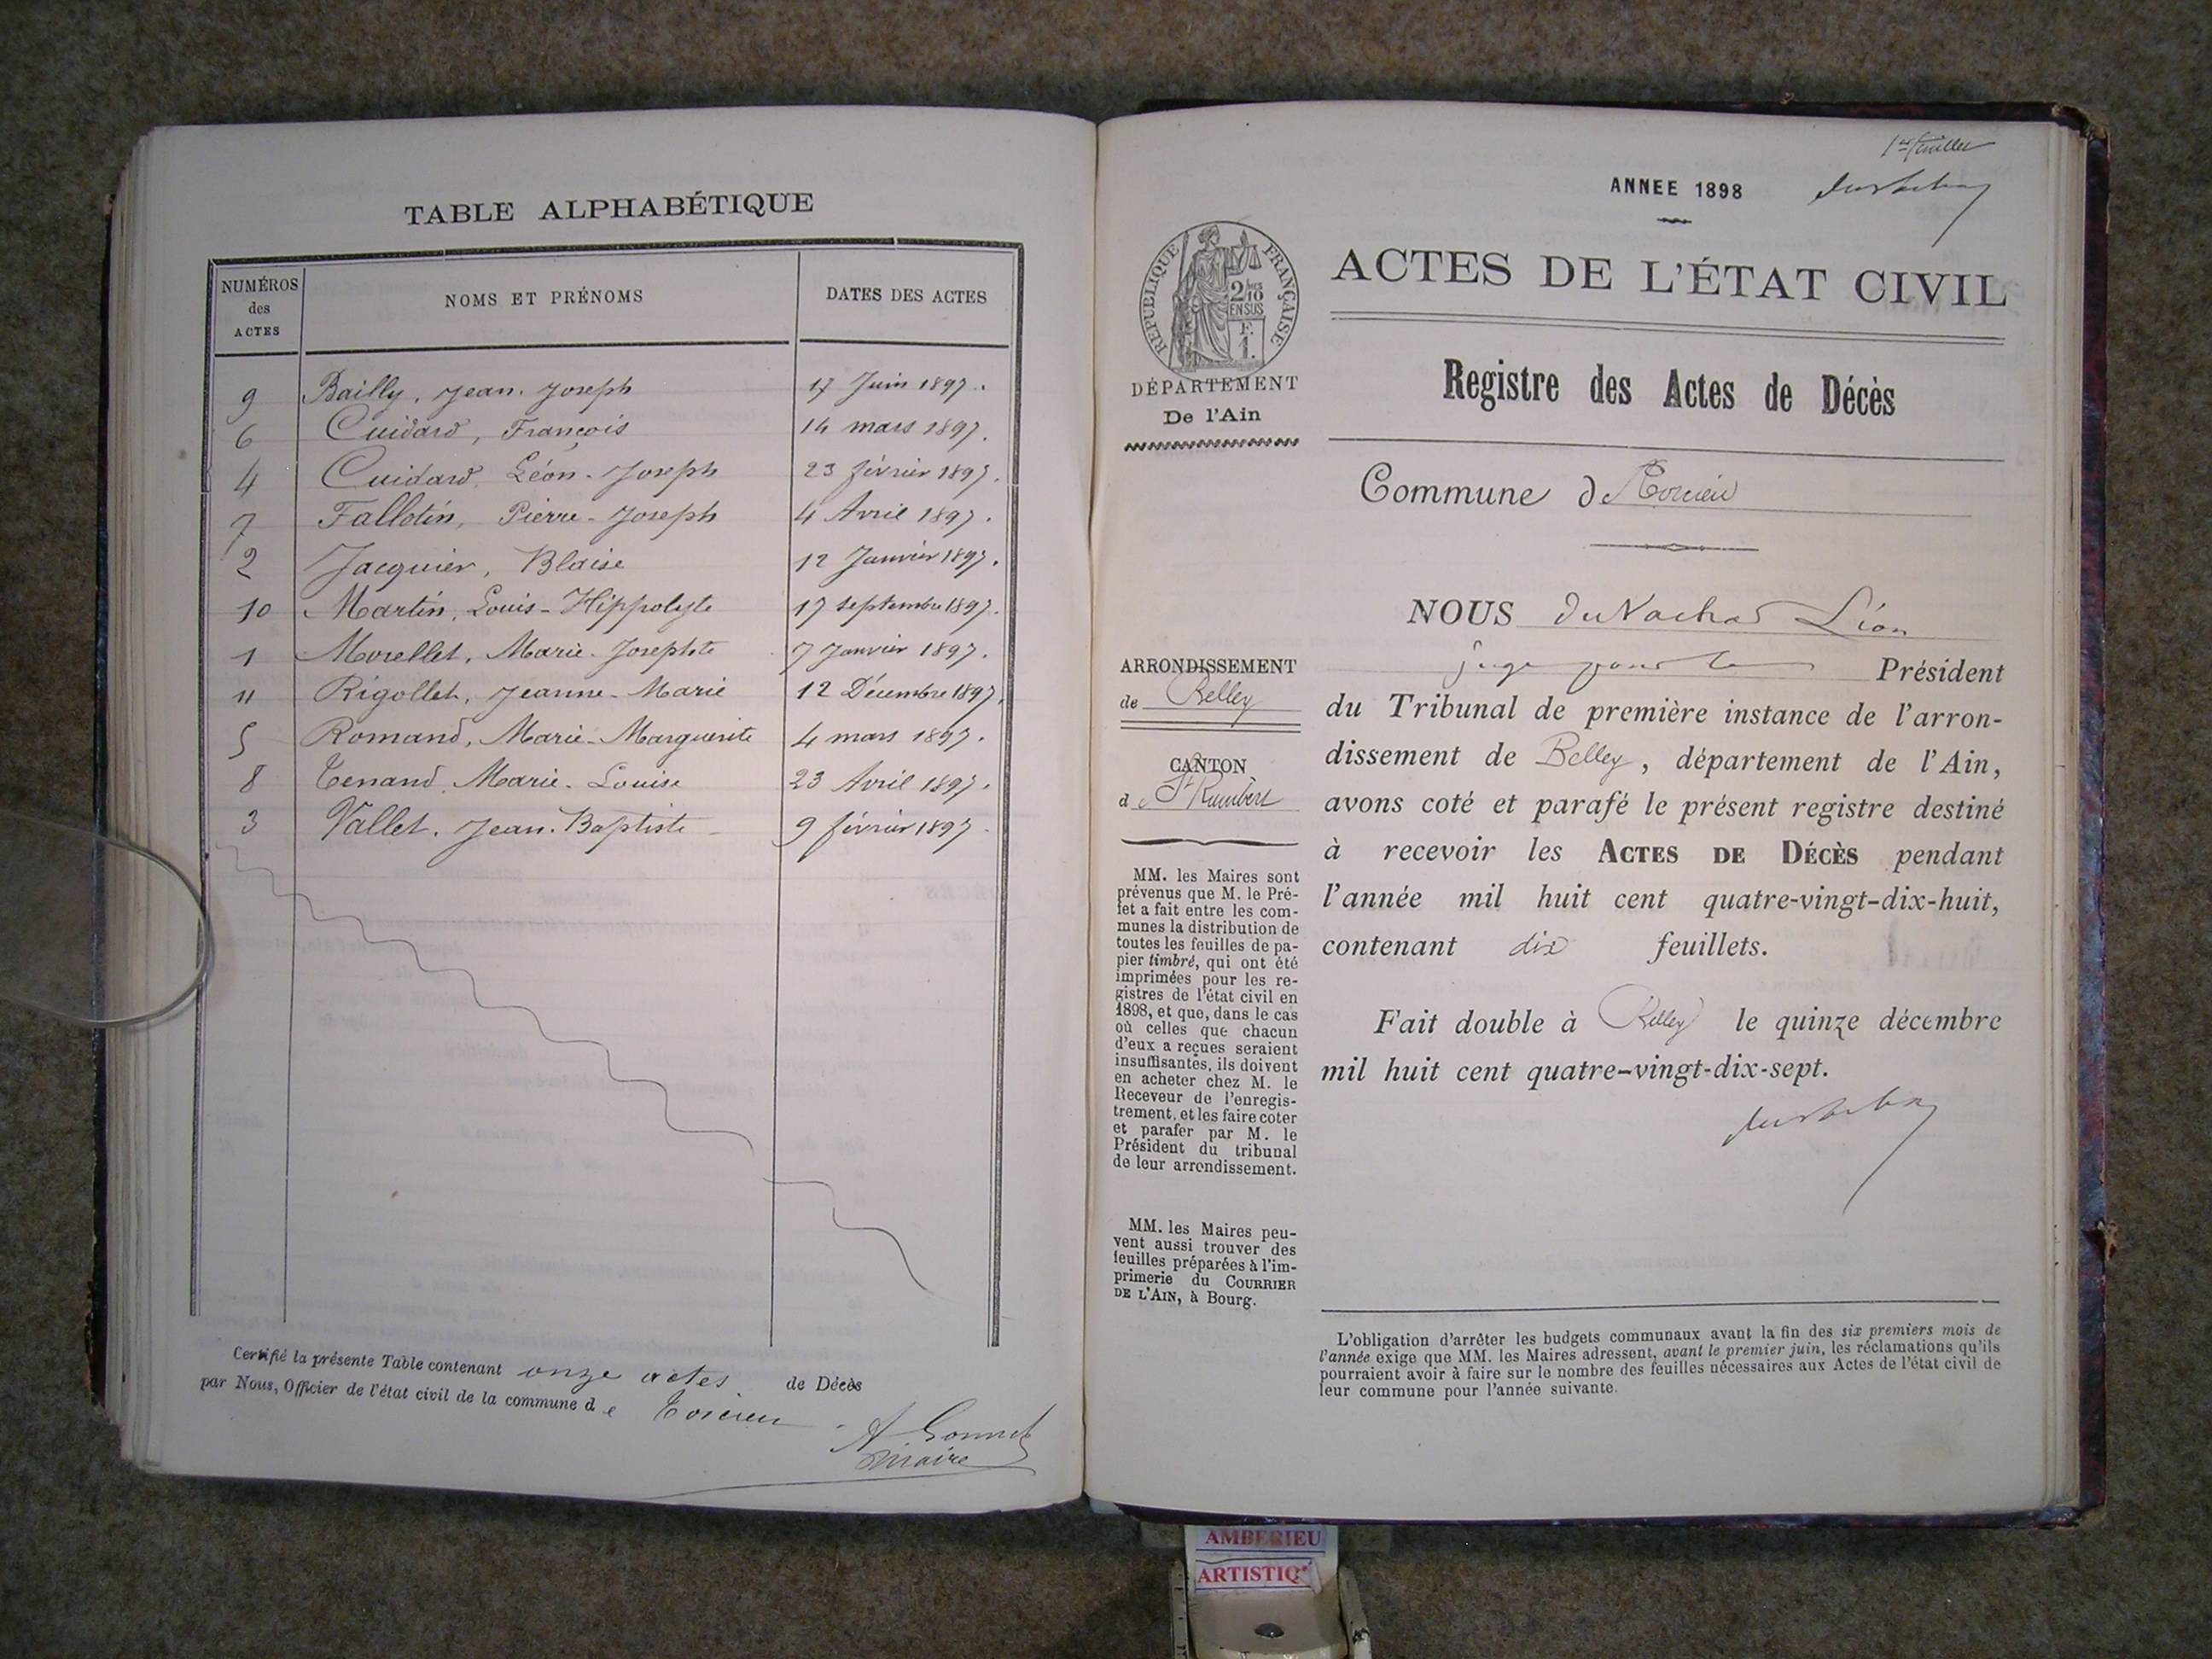 TABLE ALPHABÉTIQUE
NUMÉROS des ACTES | NOMS ET PRÉNOMS | DATES DES ACTES
9 Bailly, Jean-Joseph 17 Juin 1897.
6 Cuidard, François 14 mars 1897.
4 Cuidard, Léon-Joseph 23 février 1897.
7 Fallotin, Pierre-Joseph 4 Avril 1897.
2 Jacquier, Blaise 12 Janvier 1897.
10 Martin, Louis-Hippolyte 17 septembre 1897.
1 Morellet, Marie-Josephte 7 Janvier 1897.
11 Rigollet, Jeanne-Marie 12 Décembre 1897.
5 Romand, Marie-Marguerite 4 mars 1897.
8 Tenand, Marie-Louise 23 Avril 1897.
3 Vallet, Jean-Baptiste 9 février 1897.
Certifié la présente Table contenant onze actes de Décès
par Nous, Officier de l'état civil de la commune de Torcieu.
A Gonnet
maire
1er feuillet
ANNEE 1898
REPUBLIQUE FRANÇAISE
2/10
EN SUS
F.
1.
DÉPARTEMENT
De l'Ain
ACTES DE L'ÉTAT CIVIL
Registre des Actes de Décès
Commune de Torcieu
ARRONDISSEMENT
de Belley
CANTON
de St Rambert
MM. les Maires sont
prévenus que M. le Pré-
fet a fait entre les com-
munes la distribution de
toutes les feuilles de pa-
pier timbré, qui ont été
imprimées pour les re-
gistres de l'état civil en
1898, et que, dans le cas
où celles que chacun
d'eux a reçues seraient
insuffisantes, ils doivent
en acheter chez M. le
Receveur de l'enregis-
trement, et les faire coter
et parafer par M. le
Président du tribunal
de leur arrondissement.
MM. les Maires peu-
vent aussi trouver des
feuilles préparées à l'im-
primerie du COURRIER
DE L'AIN, à Bourg.
NOUS Léon
juge pour le Président
du Tribunal de première instance de l'arron-
dissement de Belley, département de l'Ain,
avons coté et parafé le présent registre destiné
à recevoir les ACTES DE DÉCÈS pendant
l'année mil huit cent quatre-vingt-dix-huit,
contenant dix feuillets.
Fait double à Belley le quinze décembre
mil huit cent quatre-vingt-dix-sept.
L'obligation d'arrêter les budgets communaux avant la fin des six premiers mois de
l'année exige que MM. les Maires adressent, avant le premier juin, les réclamations qu'ils
pourraient avoir à faire sur le nombre des feuilles nécessaires aux Actes de l'état civil de
leur commune pour l'année suivante.
AMBERIEU
ARTISTIQ